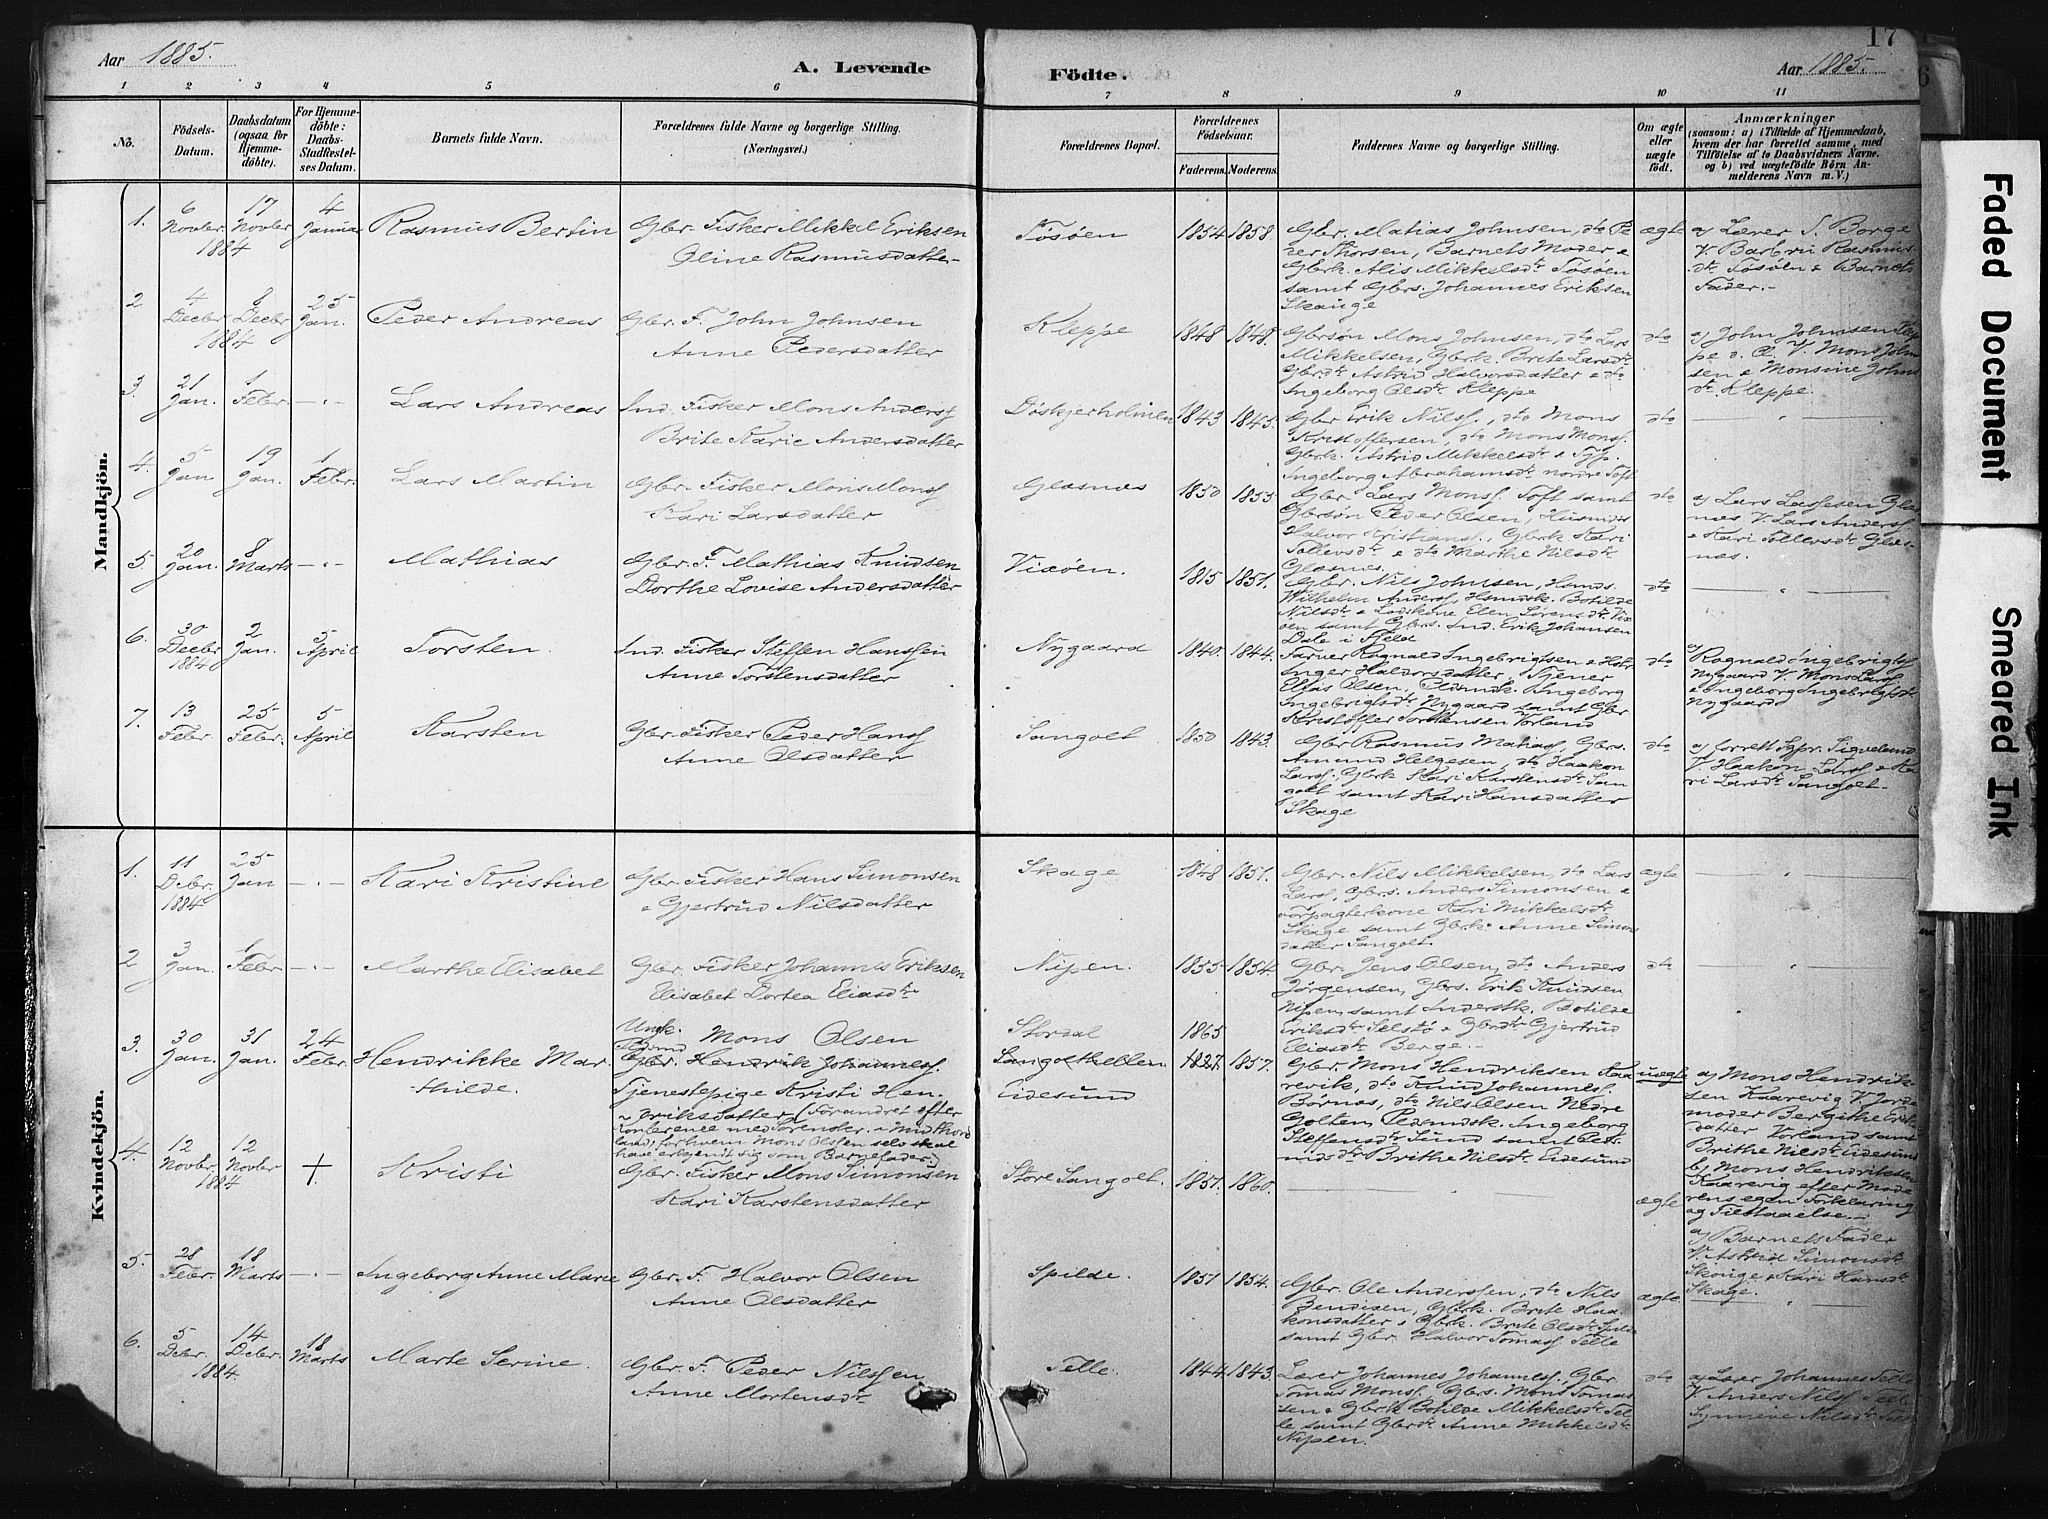 Aar 1885.
A. Levende
Födte.
Aar 1885.
17
1 2 3 4 5 6 7 8 9 10 11
No.
Födsels-
Datum.
Daabsdatum
(ogsaa for
Hjemme-
döbte).
For Hjemme-
döbte:
Daabs-
Stadfæstel-
ses Datum.
Barnets fulde Navn.
Forældrenes fulde Navne og borgerlige Stilling.
(Næringsvei.)
Forældrenes Bopæl.
Forældrenes
Födselsaar.
Faderens. Moderens.
Faddernes Navne og borgerlige Stilling.
Om ægte
eller
uægte
födt.
Anmærkninger
(saasom: a) i Tilfælde af Hjemmedaab,
hvem der har forrettet samme, med
Tilföielse af to Daabsvidners Navne.
og b) ved uægtefödte Börn An-
melderens Navn m. V.)
Mandkjön.
1. 6 Novbr 1884 17 Novbr 4 Januar Rasmus Bertin
Gbr. Fisker Mikkel Eriksen
Oline Rasmusdatter
Tösöen 1854 1858.
Gbr. Matias Johnsen, dto Pe
der Thorsen, Barnets Moder &
Gbrk. Alis Mikkelsdtr Tösöen
samt Gbrs. Johannes Eriksen
Skauge
ægte
a) Lærer S. Borge
V. Barbru Rasmus-
dtr Tösöen & Barnets
Fader.
2. 4 Decbr 1884 8 Decbr 25 Jan. Peder Andreas
Gbr. F. John Johnsen
Anne Pedersdatter
Kleppe 1848 1848.
Gbrsön Mons Johnsen, dto Lars
Mikkelsen, Gbrk. Brite Larsdtr
Gbrdtr Astrid Halvorsdatter & dto
Ingeborg Olsdtr Kleppe
dto
a) John Johnsen Klep
pe d. Æ. V. Mons John
sen & Monsine Johns
dtr Kleppe.
3. 21 Jan. 1 Febr. Lars Andreas
Ind. Fisker Mons Anderss
Brite Karie Andersdatter
Döskjerholmen 1843 1845.
Gbr Erik Nilss., dto Mons
Kristoffersen, dto Mons Monss.
Gbrk. Astrid Mikkelsdtr & Tjp.
Ingeborg Abrahamsdtr nordre Toft
dto
4. 5 Jan 19 Jan. 1 Febr. Lars Martin
Gbr. Fisker Mons Monss
Kari Larsdatter
Glæsnæs 1850 1855
Gbr. Lars Monss. Toft samt
Gbrsön Peder Olsen, Husmds
Halvor Kristianss., Gbrk Kari
Tollevsdtr & dto Marthe Nilsdtr
Glæsnæs.
dto
a) Lars Lassesen Glæs
næs V. Lars Anderss
& Kari Tollevsdtr Glæs-
næs.
5. 20 Jan. 8 Marts Mathias
Gbr. F. Mathias Knudsen
Dorthe Lovise Andersdatter
Vixöen. 1815 1851.
Gbr. Nils Johnsen, Husmds
Wilhelm Anderss, Husmdsk. Botilde
Nilsdtr & Lodskone Elen Sörensdtr Vix
öen samt Gbrs. Ind. Erik Johansen
Dale i Fjeld
dto
6. 30 Decbr 1884 2 Jan. 5 April Torsten.
Ind. Fisker Steffen Hanssen
Anne Torstensdatter
Nygaard 1840. 1844.
Farver Rognald Ingebrigtsen & Hstr
Inger Haldorsdatter, Tjener
Elias Olsen, Pldsmdsk. Ingeborg
Ingebrigtsdtr Nygaard samt Gbr.
Kristoffer Torstensen Vorland
dto
a) Rognald Ingebrigts
Nygaard V. Mons Larss
& Ingeborg Ingebrigtsdtr
Nygaard
7. 13 Febr 25 Febr. 5 April Karsten
Gbr. Fisker Peder Hanss
Anne Olsdatter
Sangolt 1850 1843.
Gbr Rasmus Matiass, Gbrs.
Amund Helgesen, dto Haakon
Larss. Gbrk Kari Karstensdtr San
golt samt Kari Hansdatter
Skage
dto
a) forrett Sgpr. Sigveland
V. Haakon Larss & Ka
ri Larsdtr Sangolt
Kvindekjön.
1. 11 Debr. 1884 25 Jan Kari Kristine
Gbr Fisker Hans Simonsen
& Gjertrud Nilsdatter
Skage 1848 1851.
Gbr. Nils Mikkelsen, dto Lars
Larss, Gbrs. Anders Simonsen &
Forpagterkone Kari Mikkelsdtr
Skage samt Gbrk Anne Simons
datter Sangolt.
ægte
2 3 Jan. 1 Febr Marthe Elisabet
Gbr. Fisker Johannes Eriksen
Elisabet Dortea Eliasdtr
Nipen. 1855 1854
Gbr. Jens Olsen, dto Anders
Jörgensen, Gbrs. Erik Knudsen
Nipen, samt Inderstk. Botilde
Eriksdtr Selstö & Gbrdtr Gjertrud
Eliasdtr Berge.
dto
3. 30 Jan. 31 Jan. 24 Febr. Hendrikke Mar
thilde.
Ungk. Mons Olsen
Bond
Gbr. Hendrik Johanness.
Tjenestepige Kristi Hen-
driksdatter (Forandret efter
Konference med Prensler. i Midthord
land, forhvem Mons Olssen selv skal
have erkjendt sig som Barnefader.)
Stordal 1865
Sangolthellen 1827 1857.
Eidesund
Gbr. Mons Hendriksen Kaa
revik, dto Knud Johanness.
Börnæs, dto Nils Olsen Nedre
Golten, Pldsmdsk. Ingeborg
Steffensdtr Sund samt Pet
Brithe Nilsdtr Eidesund
uægte
a) Mons Hendrik
sen Kaarevig V. Jorde
moder Bergithe Erik
datter Vorland samt
Brithe Nilsdtr Eidesund
b) Mons Hendriksen
Kaarevig efter Mode
rens egen Forklaring
og Tilstaaelse.
4. 12 Novbr. 1884 12 Novbr + Kristi
Gbr. Fisker Mons Simonsen
Kari Karstensdatter
Store Sangolt. 1857. 1860.
ægte
a) Barnets Fader
V. Astrid Simonsdtr
Skouge & Kari Hansdtr
Skage.
5. 28 Febr. 18 Marts Ingeborg Anne Marie
Gbr. F. Halvor Olsen
Anne Olsdatter
Spilde. 1851 1854.
Gbr. Ole Anderssen, dto Nils
Bendisen, Gbrk. Brite Haa
konsdatter & Gbrk. Brite Olsdtr Spilde
samt Gbr. Halvor Tomass Telle
ægte
6. 5 Debr. 1884 14 Debr. 18 Marts Marte Serine.
Gbr. F. Peder Nilssen
Anne Mortensdtr
Telle. 1844 1843.
Lærer Johannes Johanness, Gbr
Tomas Monss, Gbrs. Mons Tomas
sen & Gbrk Botilde Mikkelsdtr Tel
le samt Gbrdtr Anne Mikkelsdtr
Nipen.
dto
a) Lærer Johannes Telle
V. Anders Nilss Telle
Synneve Nilsdtr Telle
Faded Document
Smeared Ink